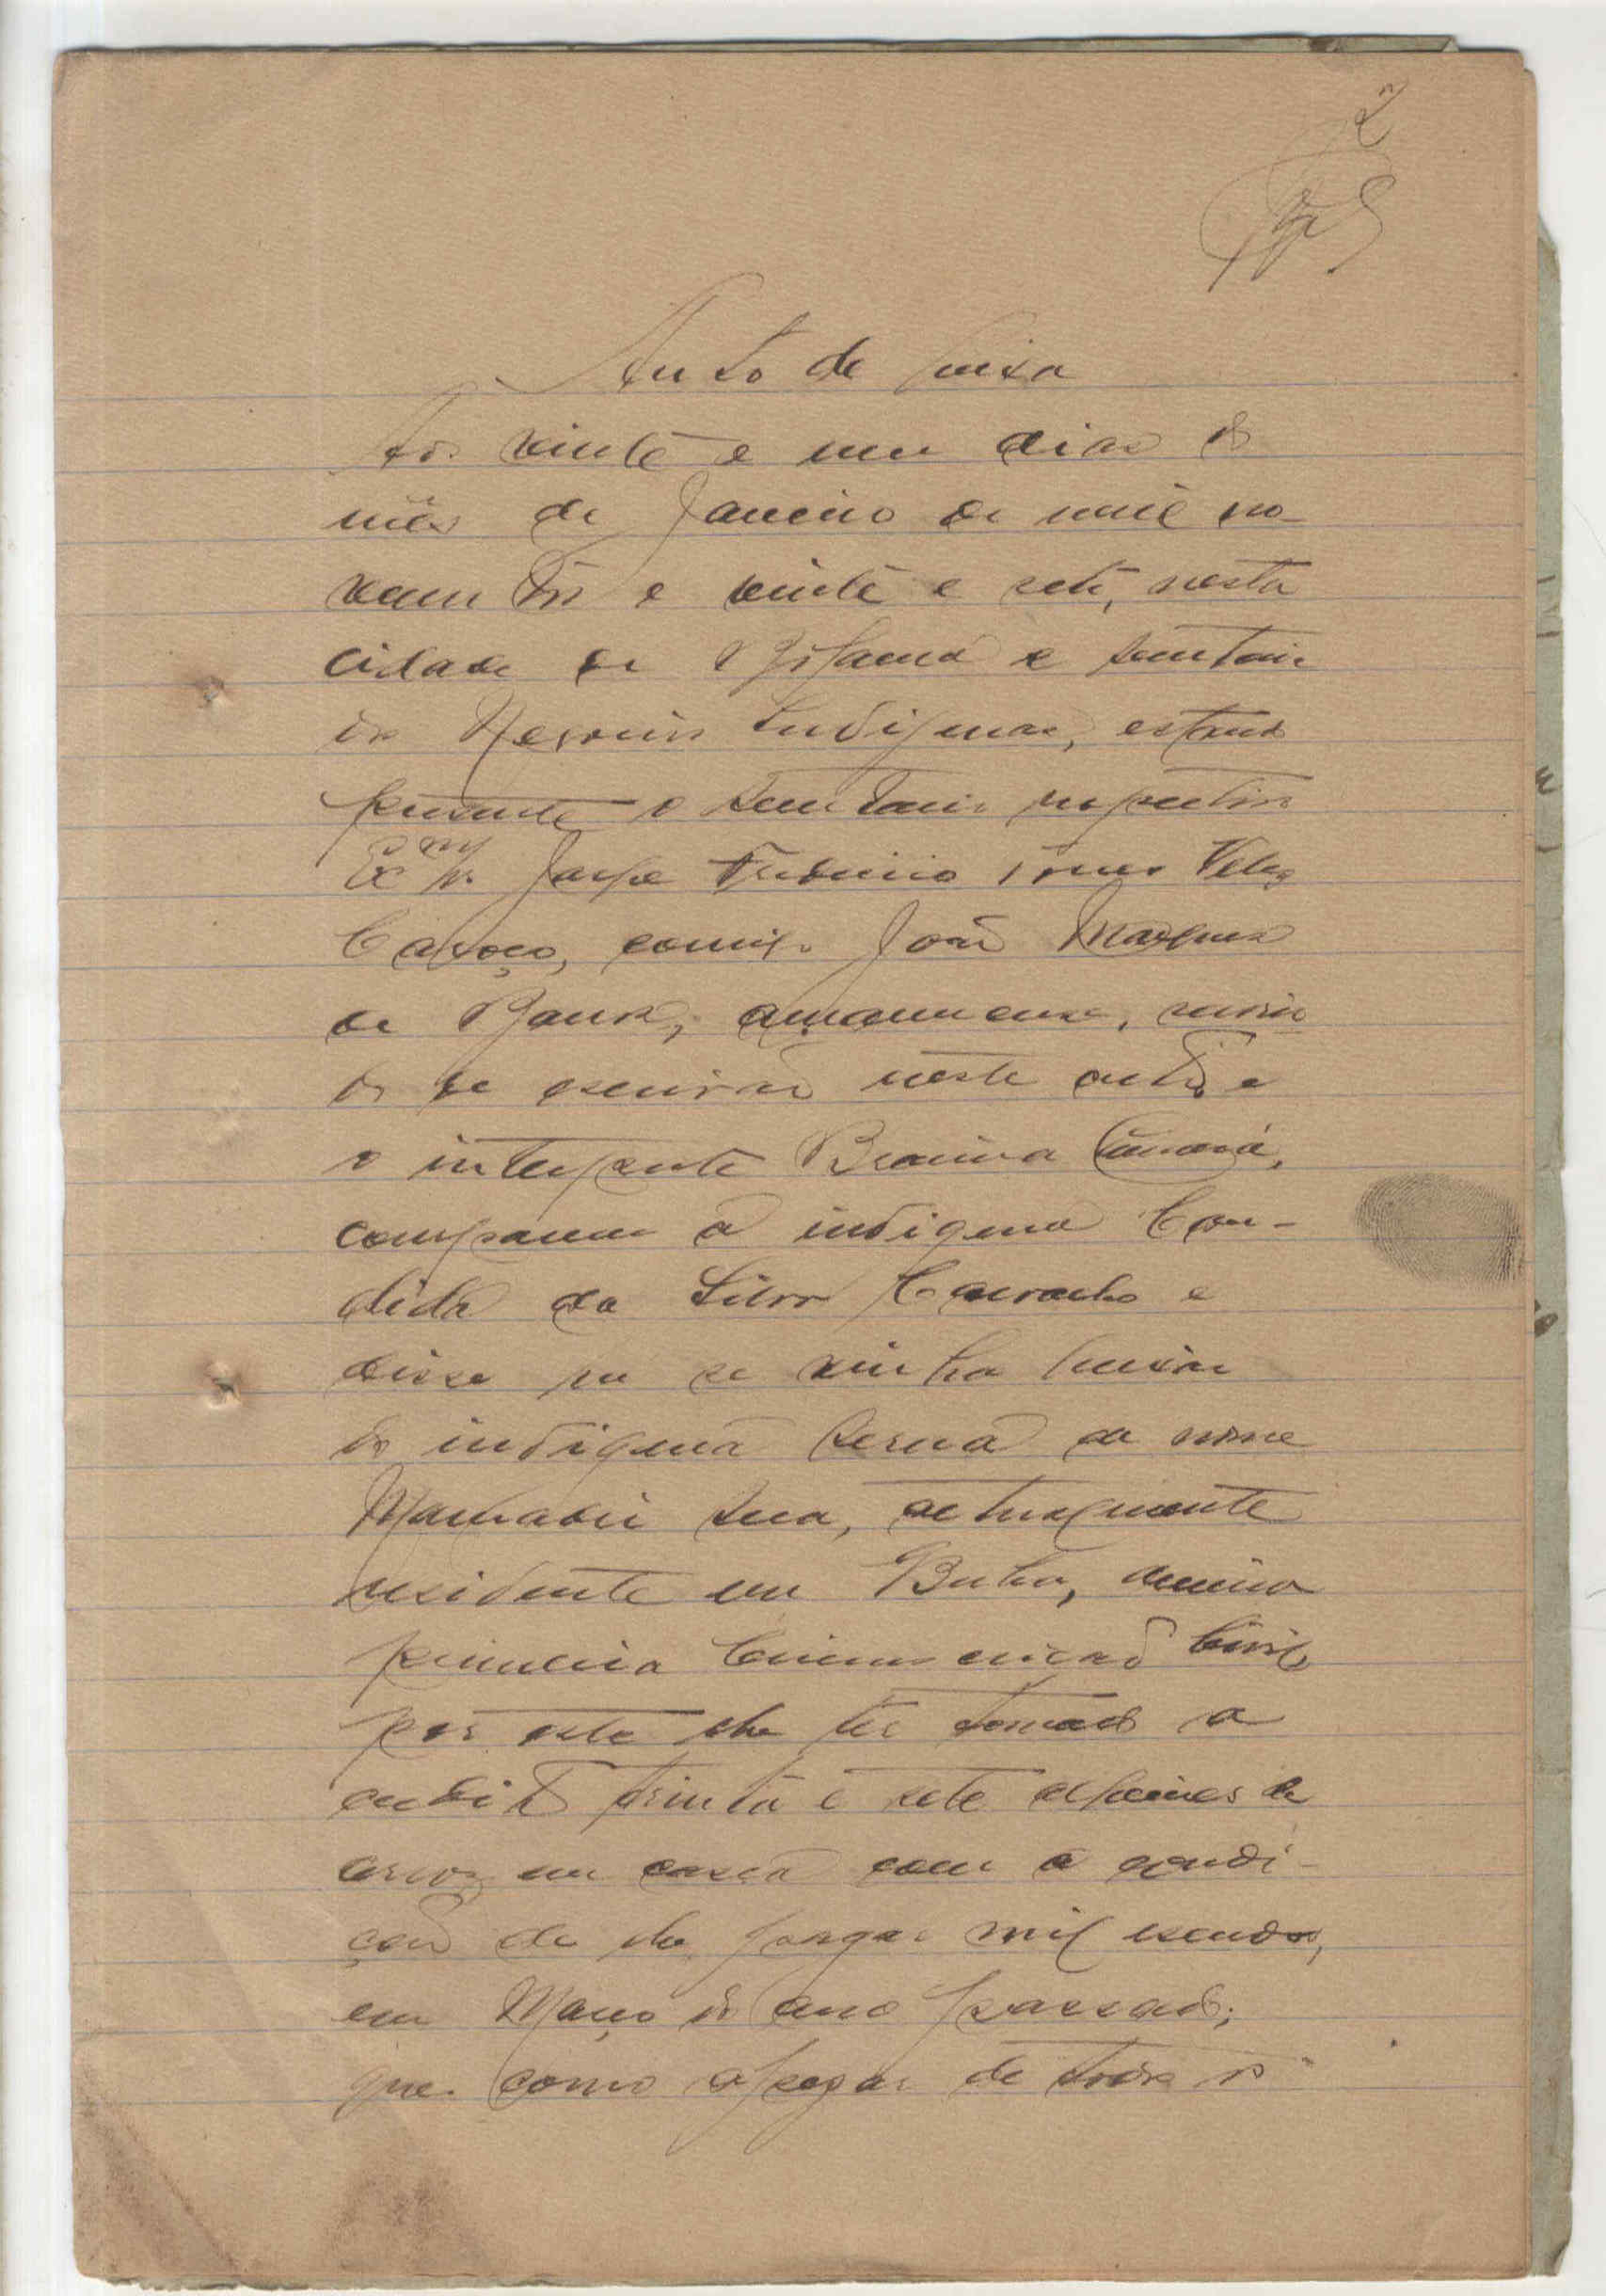 2
Auto de queixa
Aos vinte e um dias do
mês de Janeiro de mil no-
vecentos e vinte e sete, nesta
cidade de Bolama e Secretaria
dos Negocios Indigenas, estando
presente o secretario respectivo
Exmo Sr. Jorge Frederico Torres Velez
Caroço, comigo João Marques
de Barros, amanuense, servin
do de escrivão neste auto e
o interprete Braima Camará,
compareceu a indigena Can-
dida da Silva Carvalho e
disse que se vinha queixar
do indigena de nome
Mamadú, actualmente
residente em Buba,
primeira Circunscrição Civil,
por este lhe ter tomado a
credito trinta e sete de
arroz em casca com a condi-
ção de lhe pagar mil escudos,
em Março do ano passado;
que como apezar de todos os